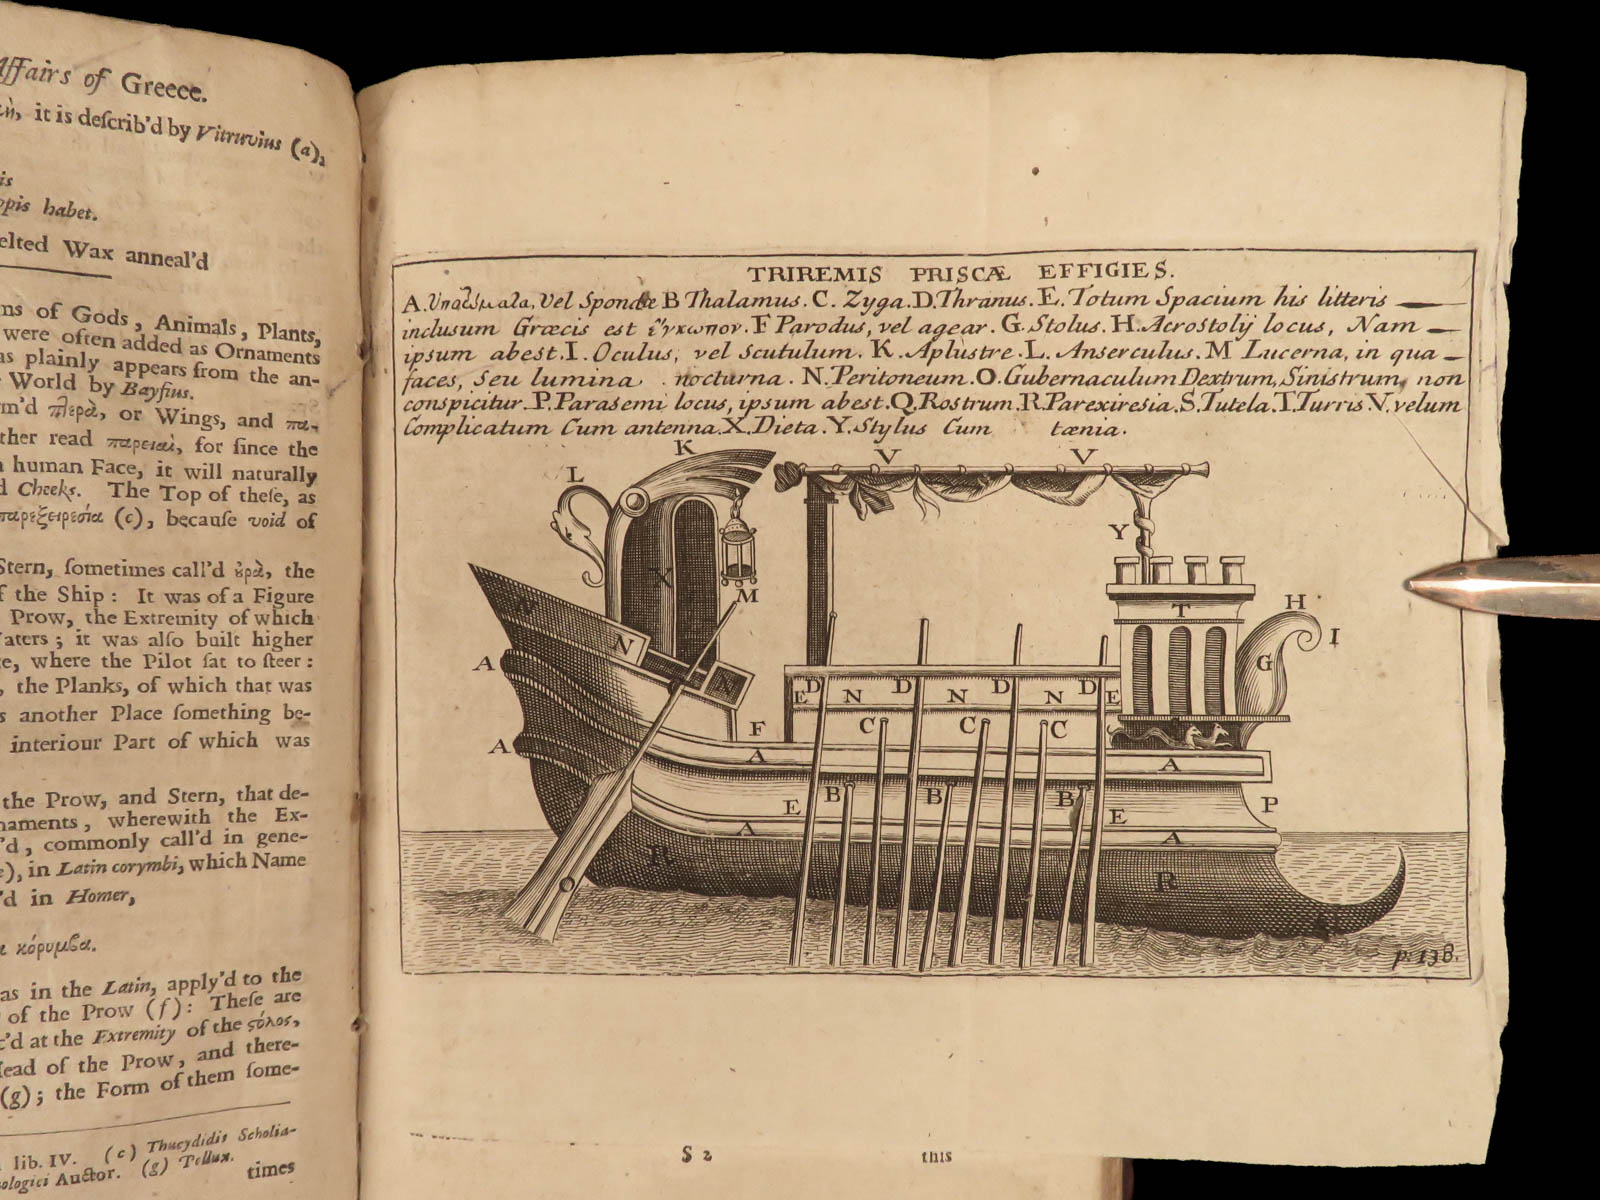 Affairs of Greece.
it is deſcrib'd by Vitruvius (a),
is
opis habet.
elted Wax anneal'd
ms of Gods, Animals, Plants,
were often added as Ornaments
as plainly appears from the an-
World by Bayfius.
m'd πλερὰ, or Wings, and πα-
ther read παρειαὶ, for ſince the
human Face, it will naturally
d Cheeks. The Top of theſe, as
παρεξειρεσία (c), becauſe void of
Stern, ſometimes call'd ὀρὰ, the
f the Ship: It was of a Figure
Prow, the Extremity of which
aters; it was alſo built higher
e, where the Pilot ſat to ſteer:
, the Planks, of which that was
s another Place ſomething be-
interiour Part of which was
the Prow, and Stern, that de-
naments, wherewith the Ex-
'd, commonly call'd in gene-
e), in Latin corymbi, which Name
'd in Homer,
κόρυμβα.
as in the Latin, apply'd to the
of the Prow (f): Theſe are
t'd at the Extremity of the ϛόλος,
Head of the Prow, and there-
(g); the Form of them ſome-
lib. IV. (c) Thucydidis Scholia-
ologici Auctor. (g) Pollux.
times
TRIREMIS PRISCÆ EFFIGIES.
A. Vel Spondæ B Thalamus. C. Zyga. D. Thranus. E. Totum Spacium his litteris
inclusum Græcis est ἔγκωπον. F Parodus, vel agear. G. Stolus. H. Acrostolij locus, Nam
ipsum abest. I. Oculus, vel scutulum. K. Aplustre. L. Anserculus. M Lucerna, in qua
faces, seu lumina nocturna. N. Peritoneum. O. Gubernaculum Dextrum, Sinistrum, non
conspicitur. P. Parasemi locus, ipsum abest. Q. Rostrum. R. Parexiresia. S. Tutela. T. Turris V. velum
Complicatum Cum antenna. X. Dieta. Y. Stylus Cum tænia.
K
V V
L
Y
X
M
H
T
I
N
N
G
A
N
E D N D N D N D E
C C C
F
S
A
A
A
B B B
E
E
P
A
A
R
O
R
p. 138.
S 2
this